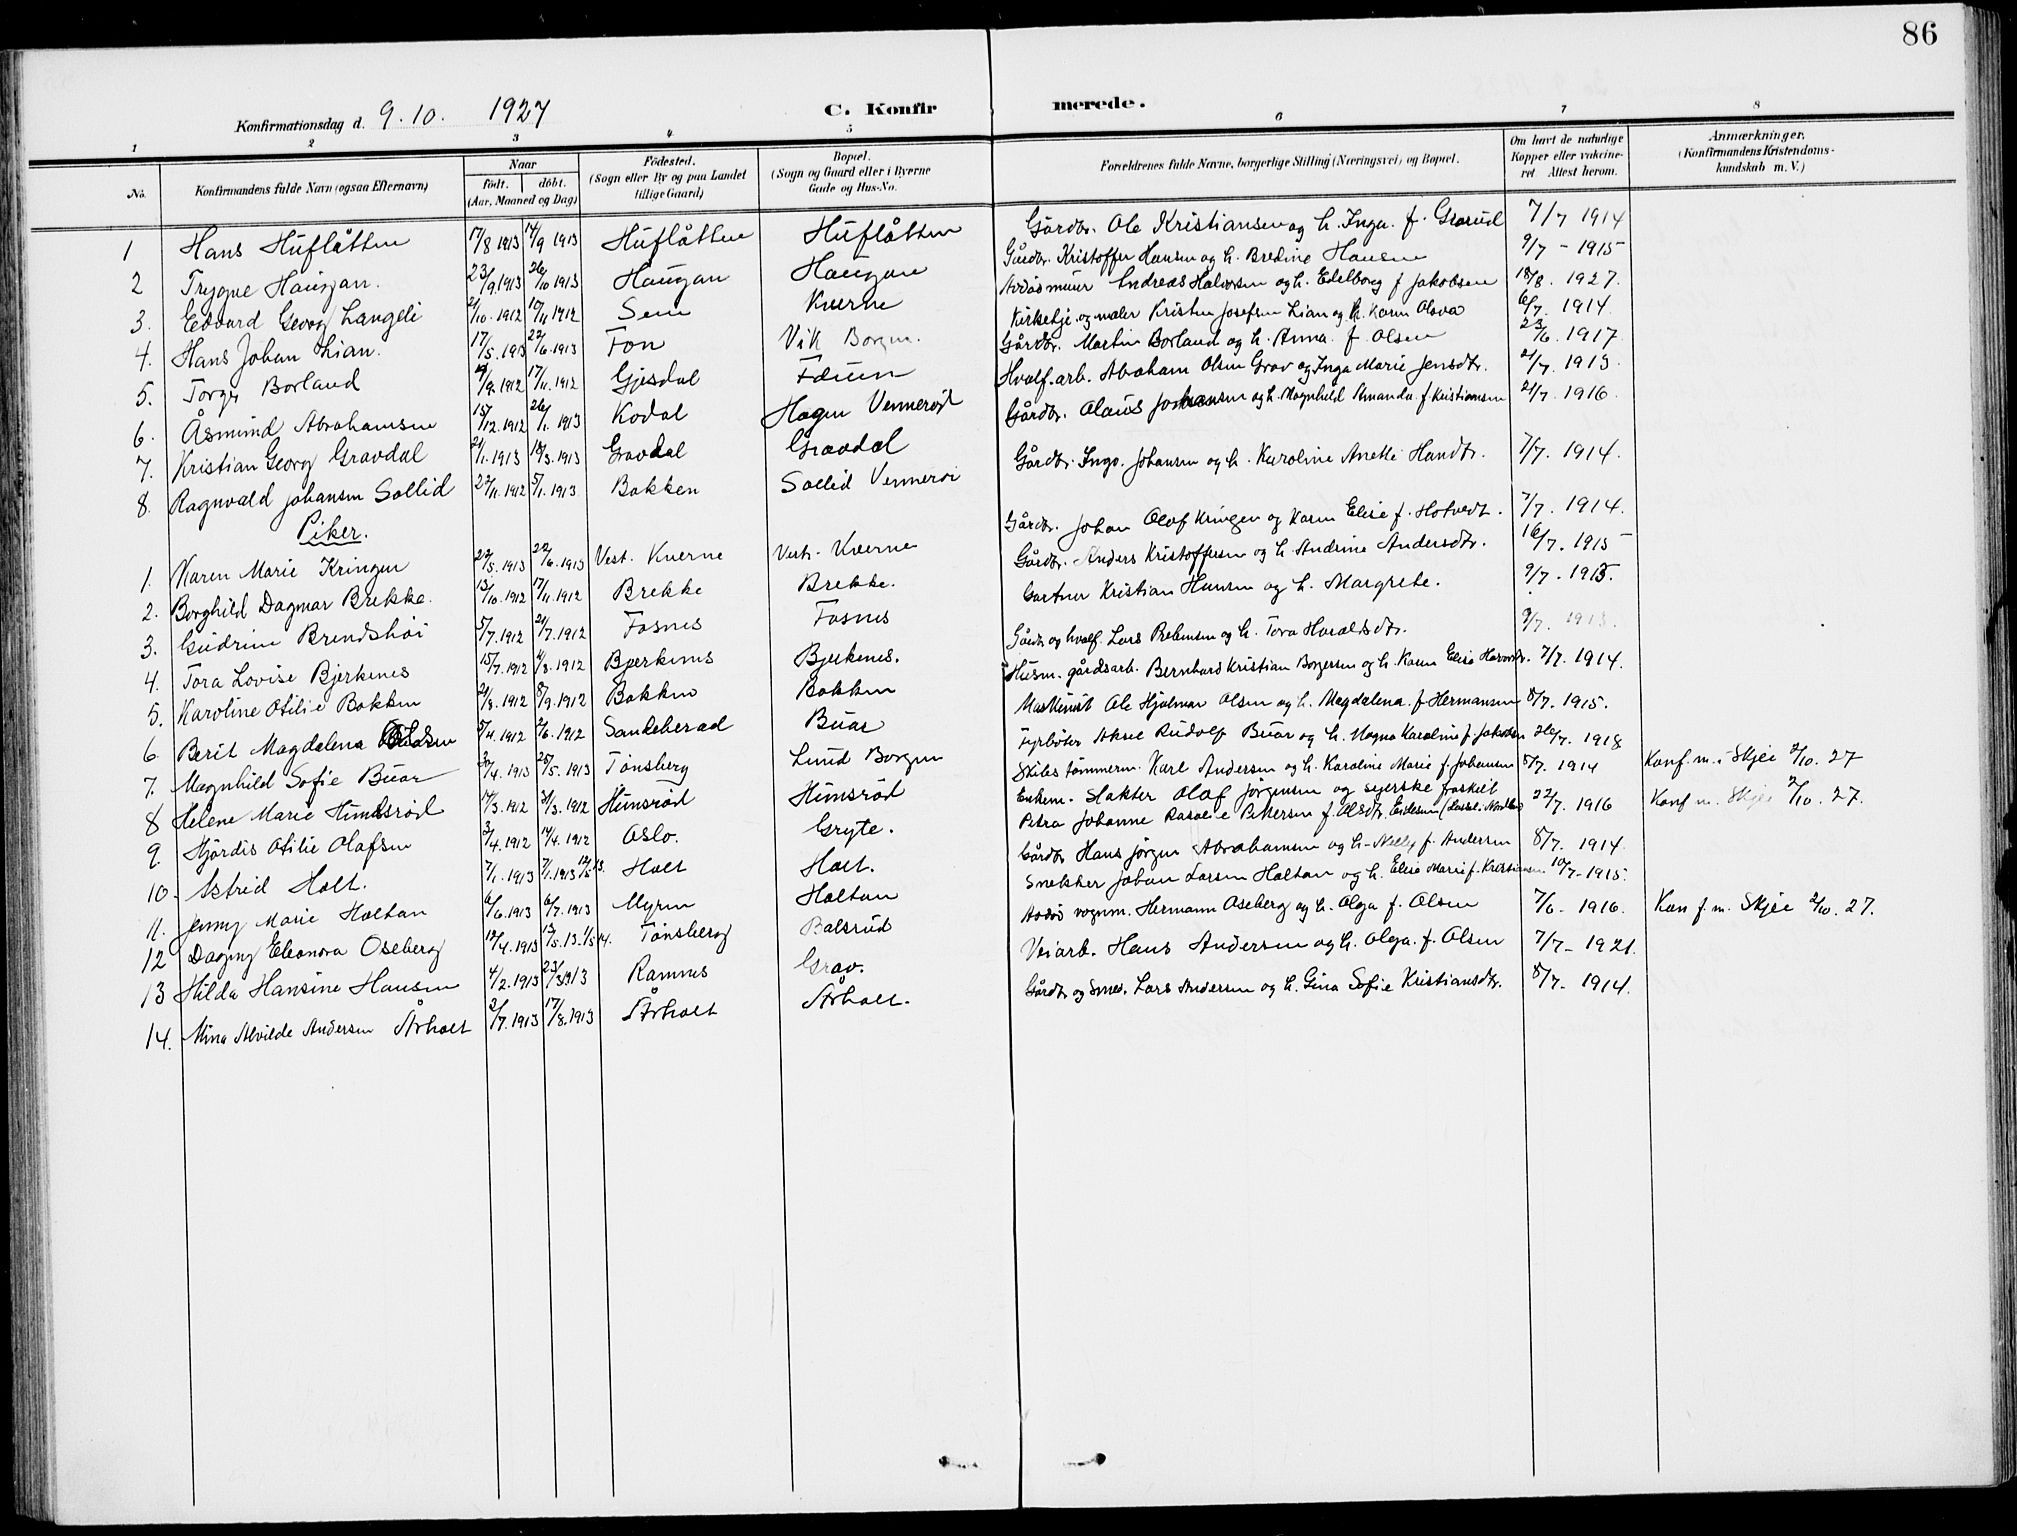 86
Konfirmationsdag d. 9.10. 1927
C. Konfir merede.
1 2 3 4 5 6 7 8
No. Konfirmandens fulde Navn (ogsaa Efternavn) Naar födt. döbt. (Aar, Maaned og Dag) Födested. (Sogn eller By og paa Landet tillige Gaard) Bopæl. (Sogn og Gaard eller i Byerne Gade og Hus-No. Forældrenes fulde Navne, borgerlige Stilling (Næringsvei) og Bopæl. Om havt de naturlige Kopper eller vakcineret. Attest herom. Anmærkninger. (Konfirmandens Kristendomskundskab m. V.)
1 Hans Huflåtten 17/8 1913 14/9 1913 Huflåtten Huflåtten Gårdbr. Ole Kristiansen og h. Inga f. Grorud 7/7 1914
2 Trygve Haugan. 23/9.1913 26/10 1913 Haugan Haugan Gårdbr. Kristoffer Hansen og h. Bredine Hansen 9/7 - 1915
3. Edvard Georg Langeli 21/10.1912 10/11 1912 Sem Kverne Andreas Halvorsen og h. Edelborg f Jakobsen 18/8. 1927.
4. Hans Johan Lian. 17/5.1913 22/6.1913 Fon Vik Borgen. Kirketje. og maler Kristen Josefsen Lian og h. Karen Olava 6/7. 1914.
5. Torger Borland 9.1912 17/11.1912 Gjesdal Føien Gårdbr. Martin Borland og h. Anna f. Olsen 23/6. 1917.
6. Åsmund Abrahamsen 15/12.1912 26/1. 1913 Kodal Hagen Vennerød Hvalf.arb. Abraham Olsen Grav og Inga Marie Jensdtr. 21/7. 1913.
7. Kristian Georg Gravdal 21/1.1913 18/3.1913 Gravdal Gravdal Gårdbr. Olaus Johansen og h. Magnhild Amanda f. Kristiansen 21/7. 1916.
8. Ragnvald Johansen Sollid 22/11.1912 5/1.1913 Bakken Sollid Vennerøi Gårdbr. Ingv. Johansen og h. Karoline Anette Handtr. 7/7. 1914.
Piker.
1. Karen Marie Kringen 22/5.1913 22/6.1913 Vest. Kverne Vest. Kverne Gårdbr. Johan Olaf Kringen og Karen Elise f. Hotvedt. 7/7. 1914.
2. Borghild Dagmar Brekke. 13/10.1912 17/11.1912 Brekke Brekke. Gårdbr. Anders Kristoffersen og h. Andrine Andersdtr. 16/7. 1915
3. Gudrun Brendshøi 5/7.1912 21/7.1912 Fosnes Fosnes Gartner Kristian Hansen og h. Margrete. 9/7. 1915.
4. Tora Lovise Bjerkenes 15/7.1912 4/8.1912 Bjerkenes Bjerkenes. Gårdbr. og hvalf. Lars Prebensen og h. Tora Haraldsdtr. 9/7. 1913.
5. Karoline Otilie Bakken 21/8.1912 8/9.1912 Bakken Bakken Husm. gårdsarb. Bernhard Kristian Borgersen og h. Karen Elise 7/7. 1914.
6. Berit Magdalena Olsen 5/4.1912 2/6.1912 Sandeherad Buar Maskinist Ole Hjalmar Olsen og h. Magdalena f. Hermansen 8/7. 1915.
7. Magnhild Sofie Buar 30/4. 1913 25/5. 1913 Tønsberg Lund Borgen Fyrbøter Aksel Rudolf Buar og h. Magna Karoline f. Jakobsen 26/7. 1918
8 Helene Marie Himsrød 14/3.1912 31/3.1912 Himsrød Himsrød Skibstømmerm. Karl Andersen og h. Karoline Marie f. Johansen 8/7. 1914 Konf. m. i Skjee 2/10. 27
9. Hjørdis Otilie Olafsen 3/4.1912 14/4.1912 Oslo. Gryte. Enkem. Slakter Olaf Jørgensen og syerske fraskilt Petra Johanne Rasalie Pettersen f. Olsdtr. 22/7. 1916 Konf m. Skjee 2/10. 27.
10. Astrid Holt. 7/1.1913 7/1.1913 Holt Holt. Gårdbr. Hans Jørgen Abrahamsen og h. Nelly f. Andersen 8/7. 1914.
11. Jenny Marie Holtan 6/6.1913 6/7.1913 Myren Holtan Snekker Johan Larsen Holtan og h. Elise Marie f. Kristiansen 10/7-1915.
12 Dagny Eleonora Oseberg 12/4.1913 13/5.13. 1/5 14. Tønsberg Bolsrød vognm. Hermann Oseberg og h. Olga f. Olsen 7/6 - 1916. Kon f.m. Skjee 2/10. 27.
13 Hilda Hansine Hansen 4/2.1913 23/3 1913 Ramnes Grav. Veiarb. Hans Andersen og h. Olga f. Olsen 7/7- 1921.
14. Mina Alvilde Andersen Årholt 2/7.1913 17/8.1913 Årholt Årholt. Gårdbr. og Smed. Lars Andersen og h. Gina Sofie Kristiansdtr. 8/7- 1914.